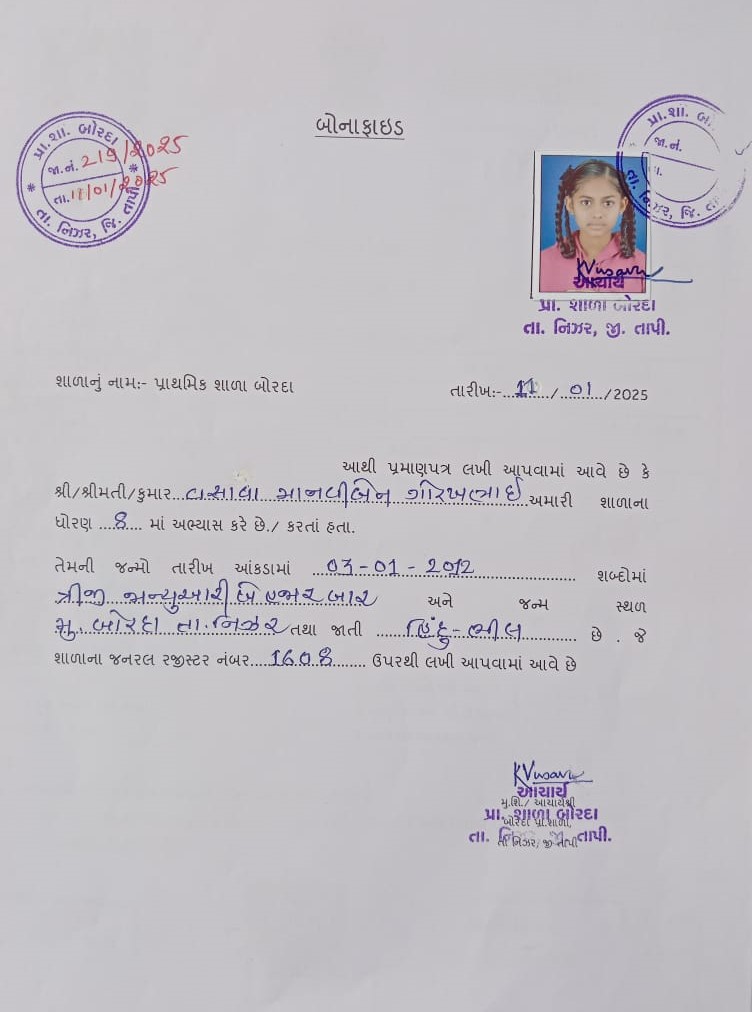 બોનાફાઇડ
પ્રા. શા. બોરદા
જા.નં. 219/2025
તા. 11/01/2025
તા. નિઝર, જિ. તાપી
પ્રા. શા. બ.
જા. નં.
તા. નિઝર, જિ. તા
KVasava
આચાર્ય
પ્રા. શાળા બોરદા
તા. નિઝર, જી. તાપી.
શાળાનું નામ:- પ્રાથમિક શાળા બોરદા તારીખ:-...11.../...01.../2025
આથી પ્રમાણપત્ર લખી આપવામાં આવે છે કે
શ્રી/શ્રીમતી/કુમાર...વસાવા માનવીબેન ગોરખભાઈ.અમારી શાળાના
ધોરણ ...8.... માં અભ્યાસ કરે છે./ કરતાં હતા.
તેમની જન્મો તારીખ આંકડામાં ...03-01-2012............... શબ્દોમાં
ત્રીજી જાન્યુઆરી બે હજાર બાર અને જન્મ સ્થળ
મુ. બોરદા તા. નિઝર તથા જાતી .....હિંદુ-ભીલ......... છે . જે
શાળાના જનરલ રજીસ્ટર નંબર....1608........ ઉપરથી લખી આપવામાં આવે છે
KVasava
આચાર્ય
મુ.શિ./ આચાર્યશ્રી
પ્રા. શાળા બોરદા
બોરદા પ્રા.શાળા,
તા. નિઝર, જી. તાપી.
તા નિઝર, જી તાપી